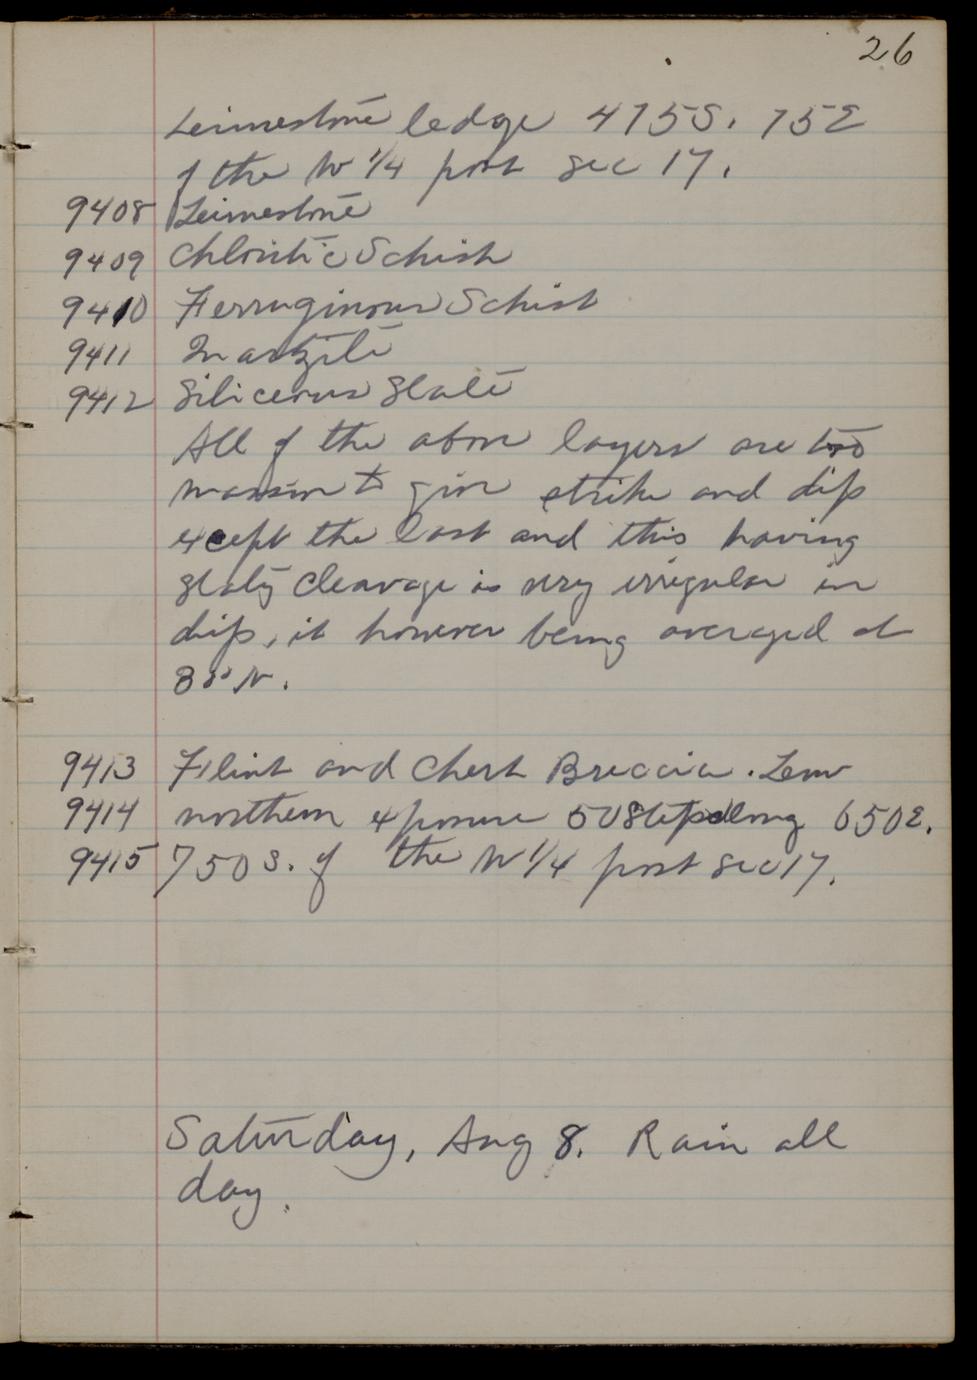 26
Leimestone ledge 475S. 75E
of the W 1/4 post Sec 17.
9408 Leimestone
9409 Chloritic Schist
9410 Ferruginous Schist
9411 Quartzite
9412 Siliceous Slate
All of the above layers are too
massive to give strike and dip
except the last and this having
slaty cleavage is very irregular in
dip, it however being averaged at
N.
9413 Flint and Chert Breccia.
9414 northern exposure 50 steps long 650E.
9415 750S. of the W 1/4 post Sec 17.
Saturday, Aug 8. Rain all
day.